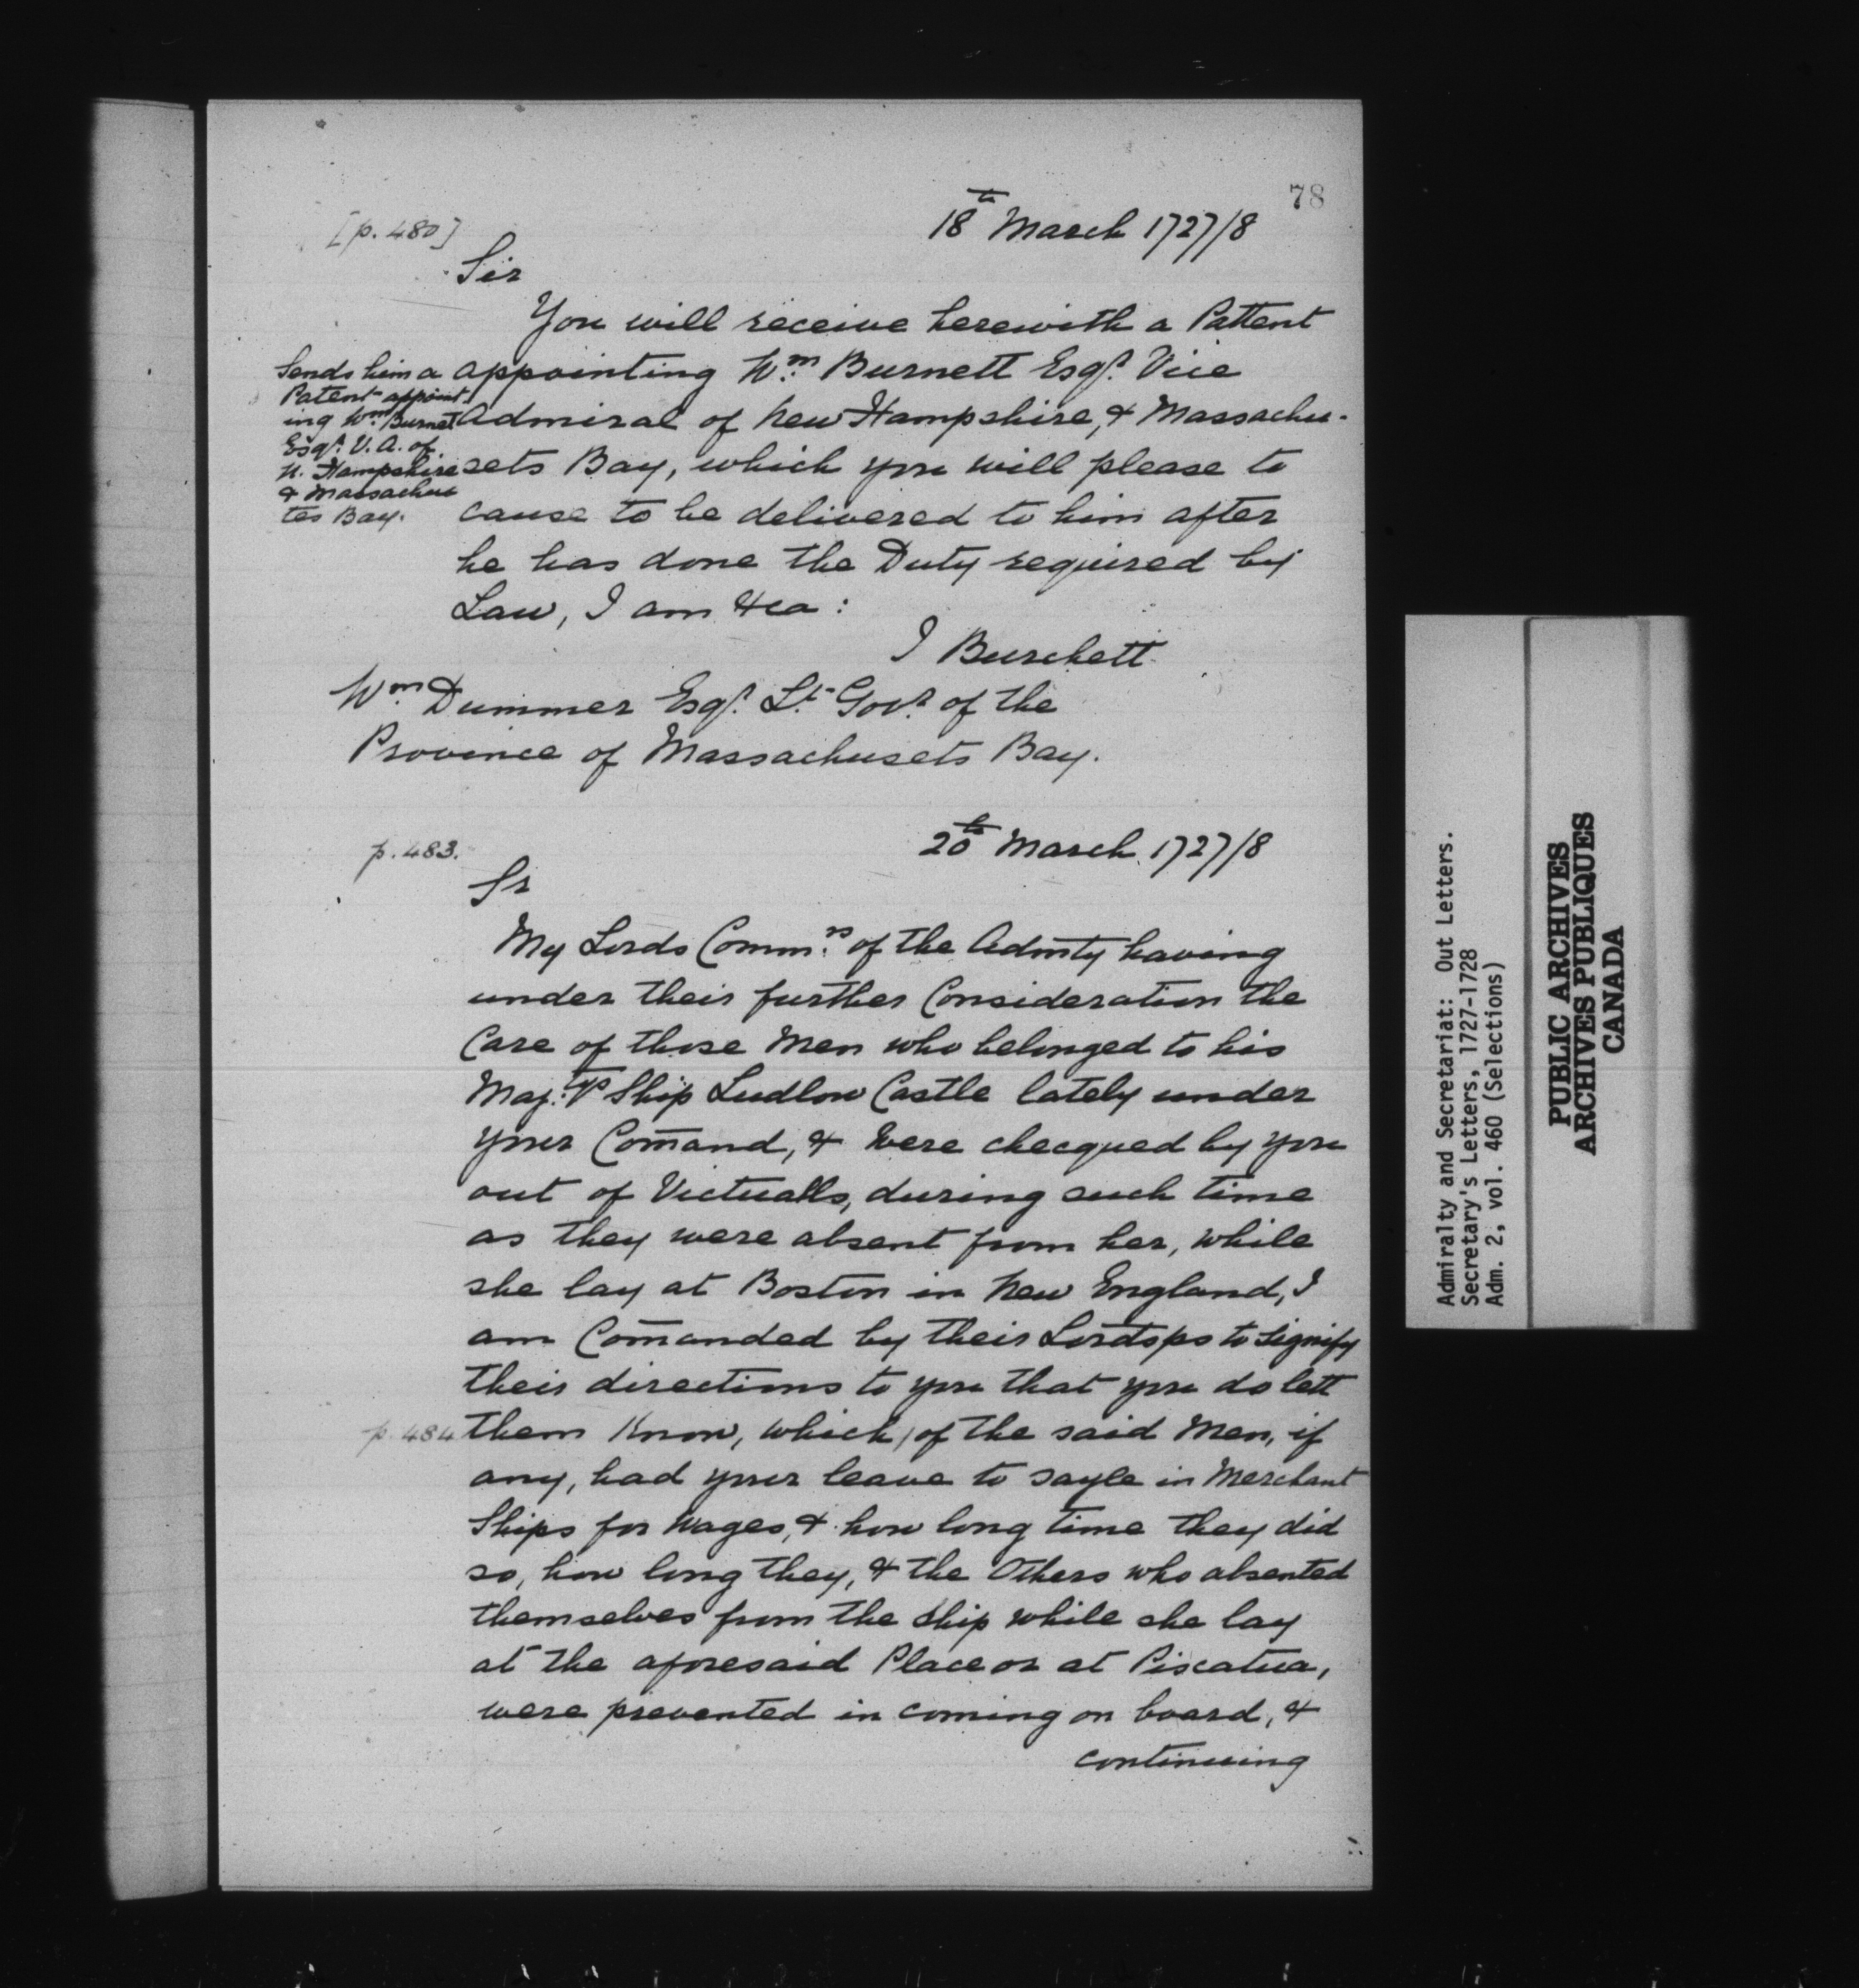 78
[p. 480]
18th March 1727/8
Sir
You will receive herewith a Pattent
appointing Wm. Burnett Esqr. Vice
Admiral of New Hampshire, & Massachu-
sets Bay, which you will please to
cause to be delivered to him after
he has done the Duty required by
Law, I am &ca:
J Burchett
Sends him a
Patent appoint-
ing Wm. Burnet
Esqr. V. A. of
N. Hampshire
& Massachus
tes Bay.
Wm Dummer Esqr. Lt. Govr. of the
Province of Massachusets Bay.
p. 483.
20th March 1727/8
Sr
My Lords Commrs. of the Admty having
under their further Consideration the
Case of those Men who belonged to his
Maj:tys Ship Ludlow Castle lately under
your Com̄and, & were checqued by you
out of Victualls, during such time
as they were absent from her, while
she lay at Boston in New England, I
am Com̄anded by their Lordsps to signify
their directions to you that you do lett
p. 484 them Know, which, of the said Men, if
any, had your leave to sayle in Merchant
Ships for Wages, & how long time they did
so, how long they, & the Others who absented
themselves from the Ship while she lay
at the aforesaid Place or at Piscatua,
were prevented in coming on board, &
continuing
Admiralty and Secretariat: Out Letters.
Secretary's Letters, 1727-1728
Adm. 2, vol. 460 (Selections)
PUBLIC ARCHIVES
ARCHIVES PUBLIQUES
CANADA